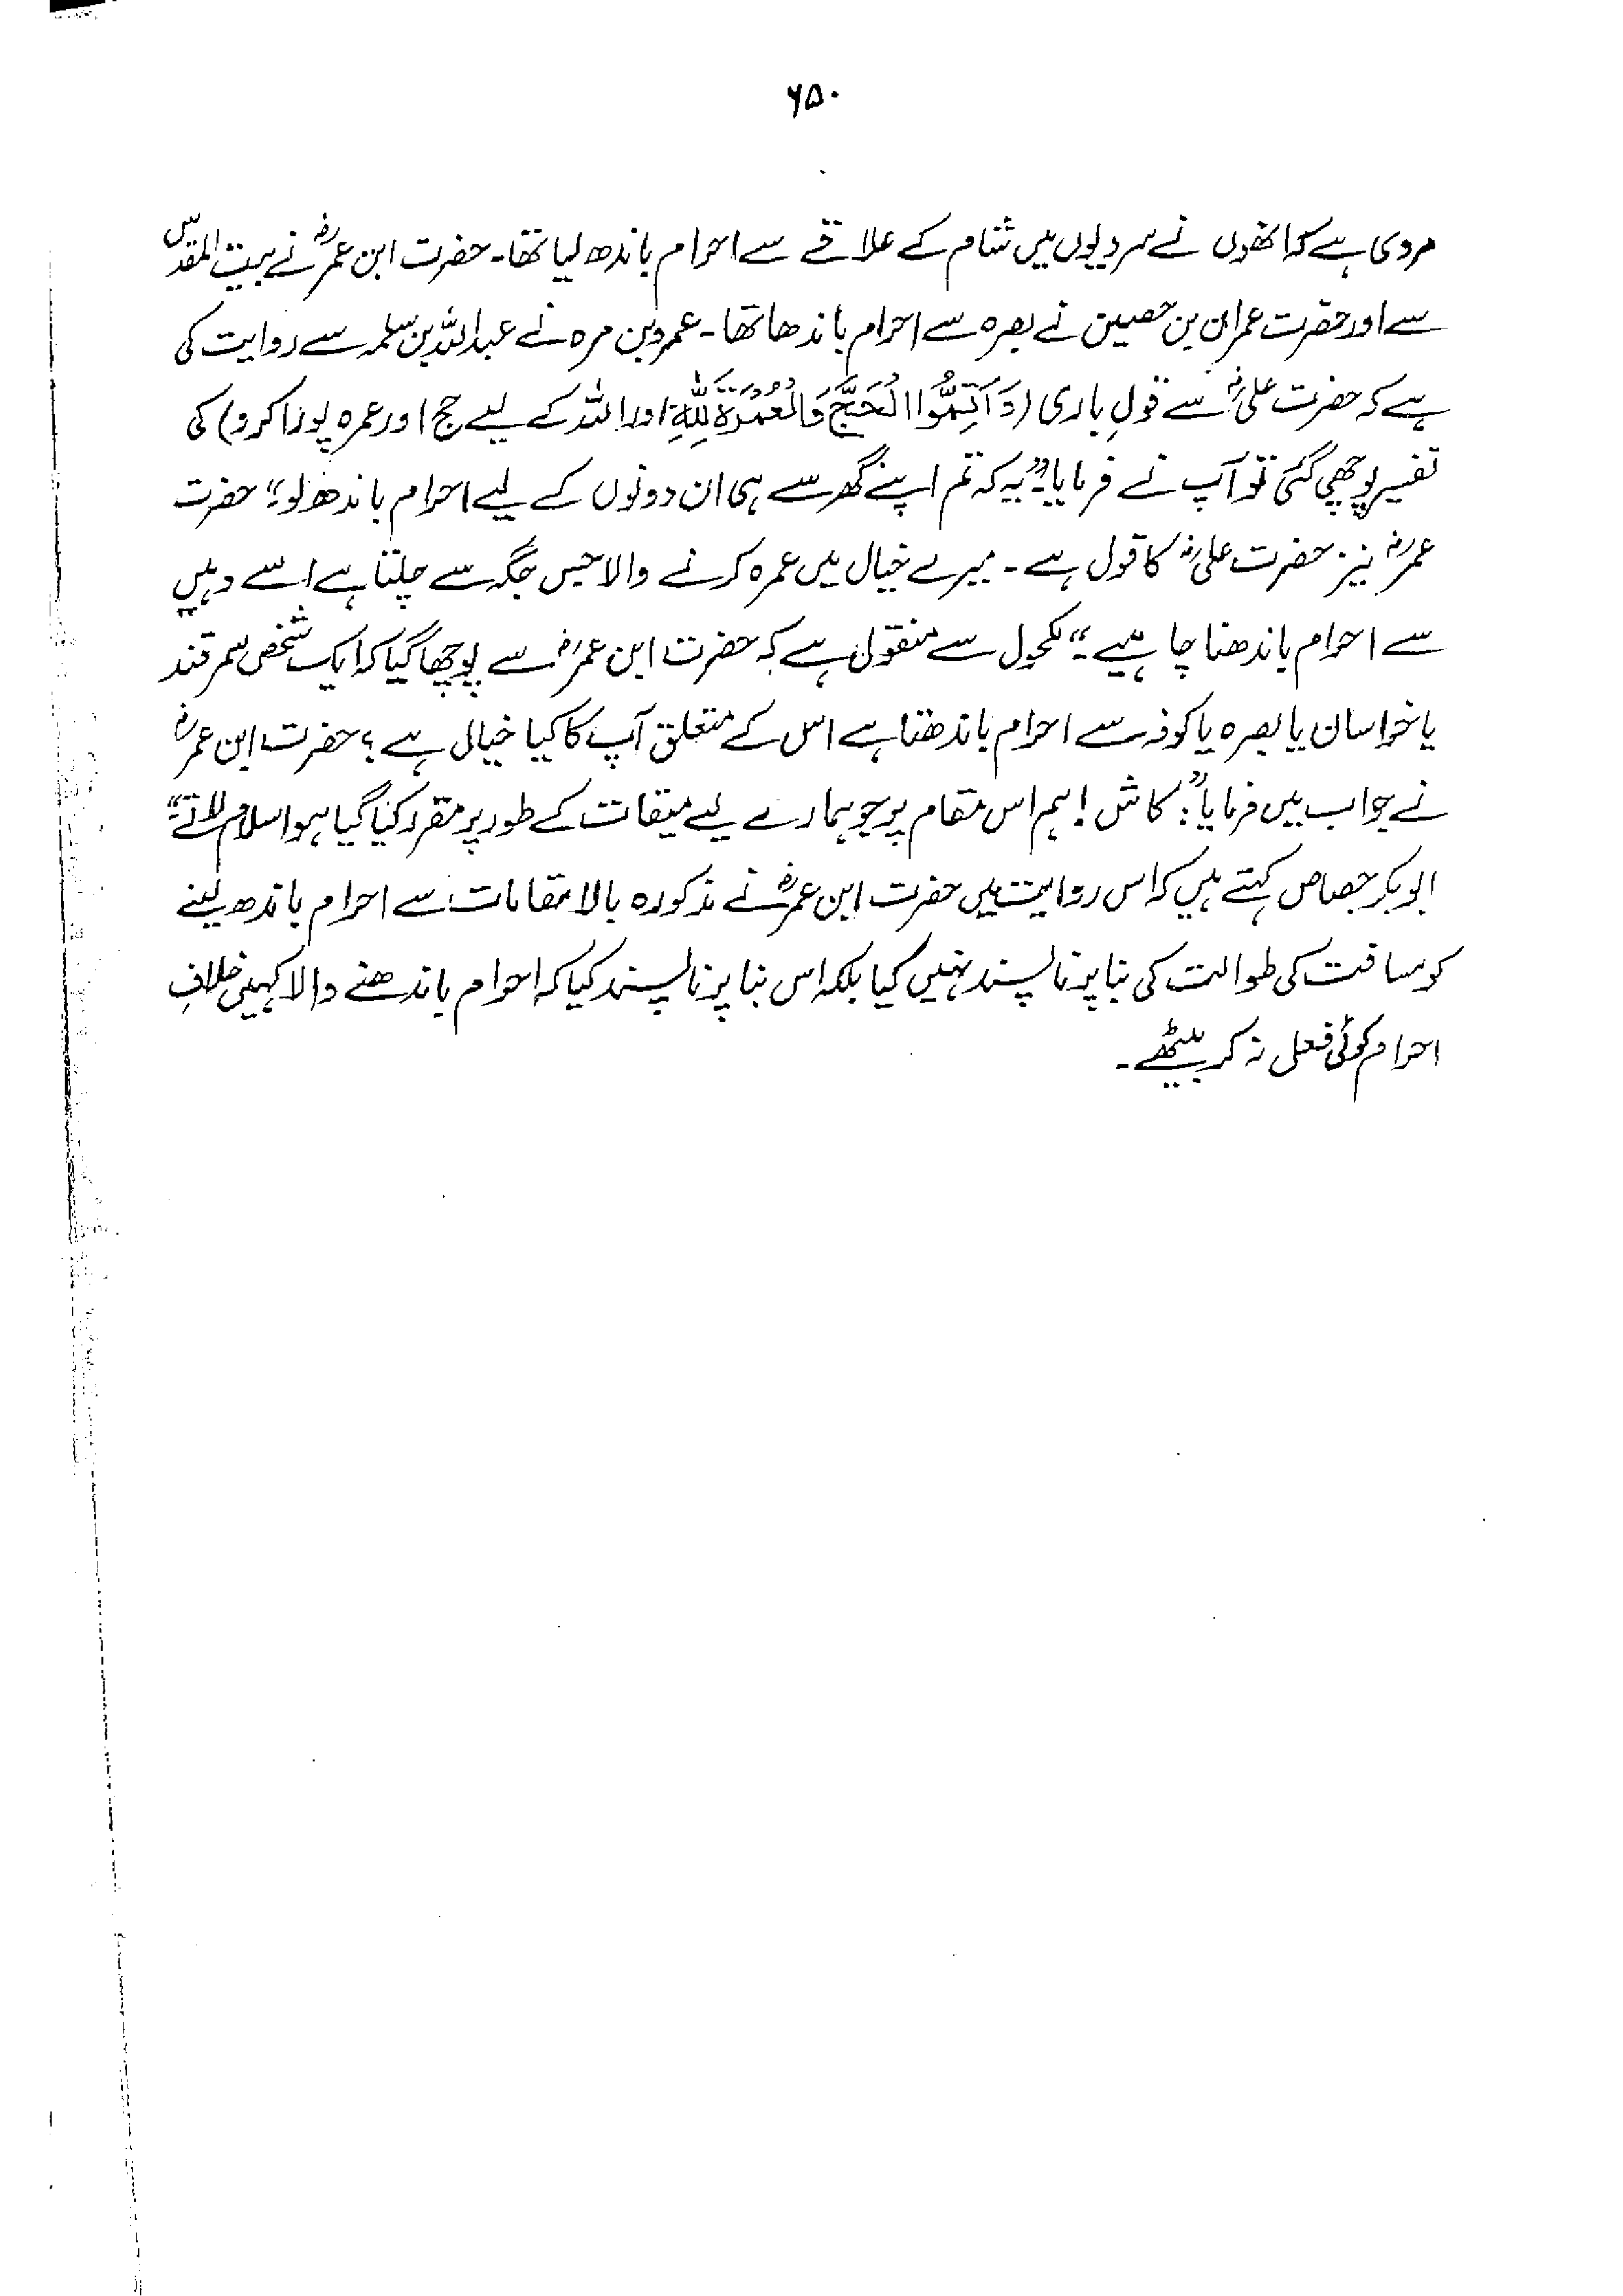 ۶۵۰
مروی ہے کہ انھوں نے سردیوں میں شام کے علاقے سے احرام باندھ لیا تھا۔ حضرت ابن عمرؓ نے بیت المقدس
سے اور حضرت عمران بن حصین نے بصرہ سے احرام باندھا تھا۔ عمرو بن مرہ نے عبداللہ بن سلمہ سے روایت کی
ہے کہ حضرت علیؓ سے قولِ باری (وَاَتِمُّوا الْحَجَّ وَالْعُمْرَةَ لِلّٰهِ اور اللہ کے لیے حج اور عمرہ پورا کرو) کی
تفسیر پوچھی گئی تو آپ نے فرمایا: "یہ کہ تم اپنے گھر سے ہی ان دونوں کے لیے احرام باندھ لو؛" حضرت
عمرؓ نیز حضرت علیؓ کا قول ہے۔ میرے خیال میں عمرہ کرنے والا جس جگہ سے چلتا ہے اسے وہیں
سے احرام باندھنا چاہیے۔" مکحول سے منقول ہے کہ حضرت ابن عمرؓ سے پوچھا گیا کہ ایک شخص سمرقند
یا خراسان یا بصرہ یا کوفہ سے احرام باندھتا ہے اس کے متعلق آپ کا کیا خیال ہے؟ حضرت ابن عمرؓ
نے جواب میں فرمایا: "کاش! ہم اس مقام پر جو ہمارے لیے میقات کے طور پر مقرر کیا گیا ہو اسلام لاتے"
ابوبکر جصاص کہتے ہیں کہ اس روایت میں حضرت ابن عمرؓ نے مذکورہ بالا مقامات سے احرام باندھ لینے
کو مسافت کی طوالت کی بنا پر ناپسند نہیں کیا بلکہ اس بنا پر ناپسند کیا کہ احرام باندھنے والا کہیں خلافِ
احرام کوئی فعل نہ کر بیٹھے۔